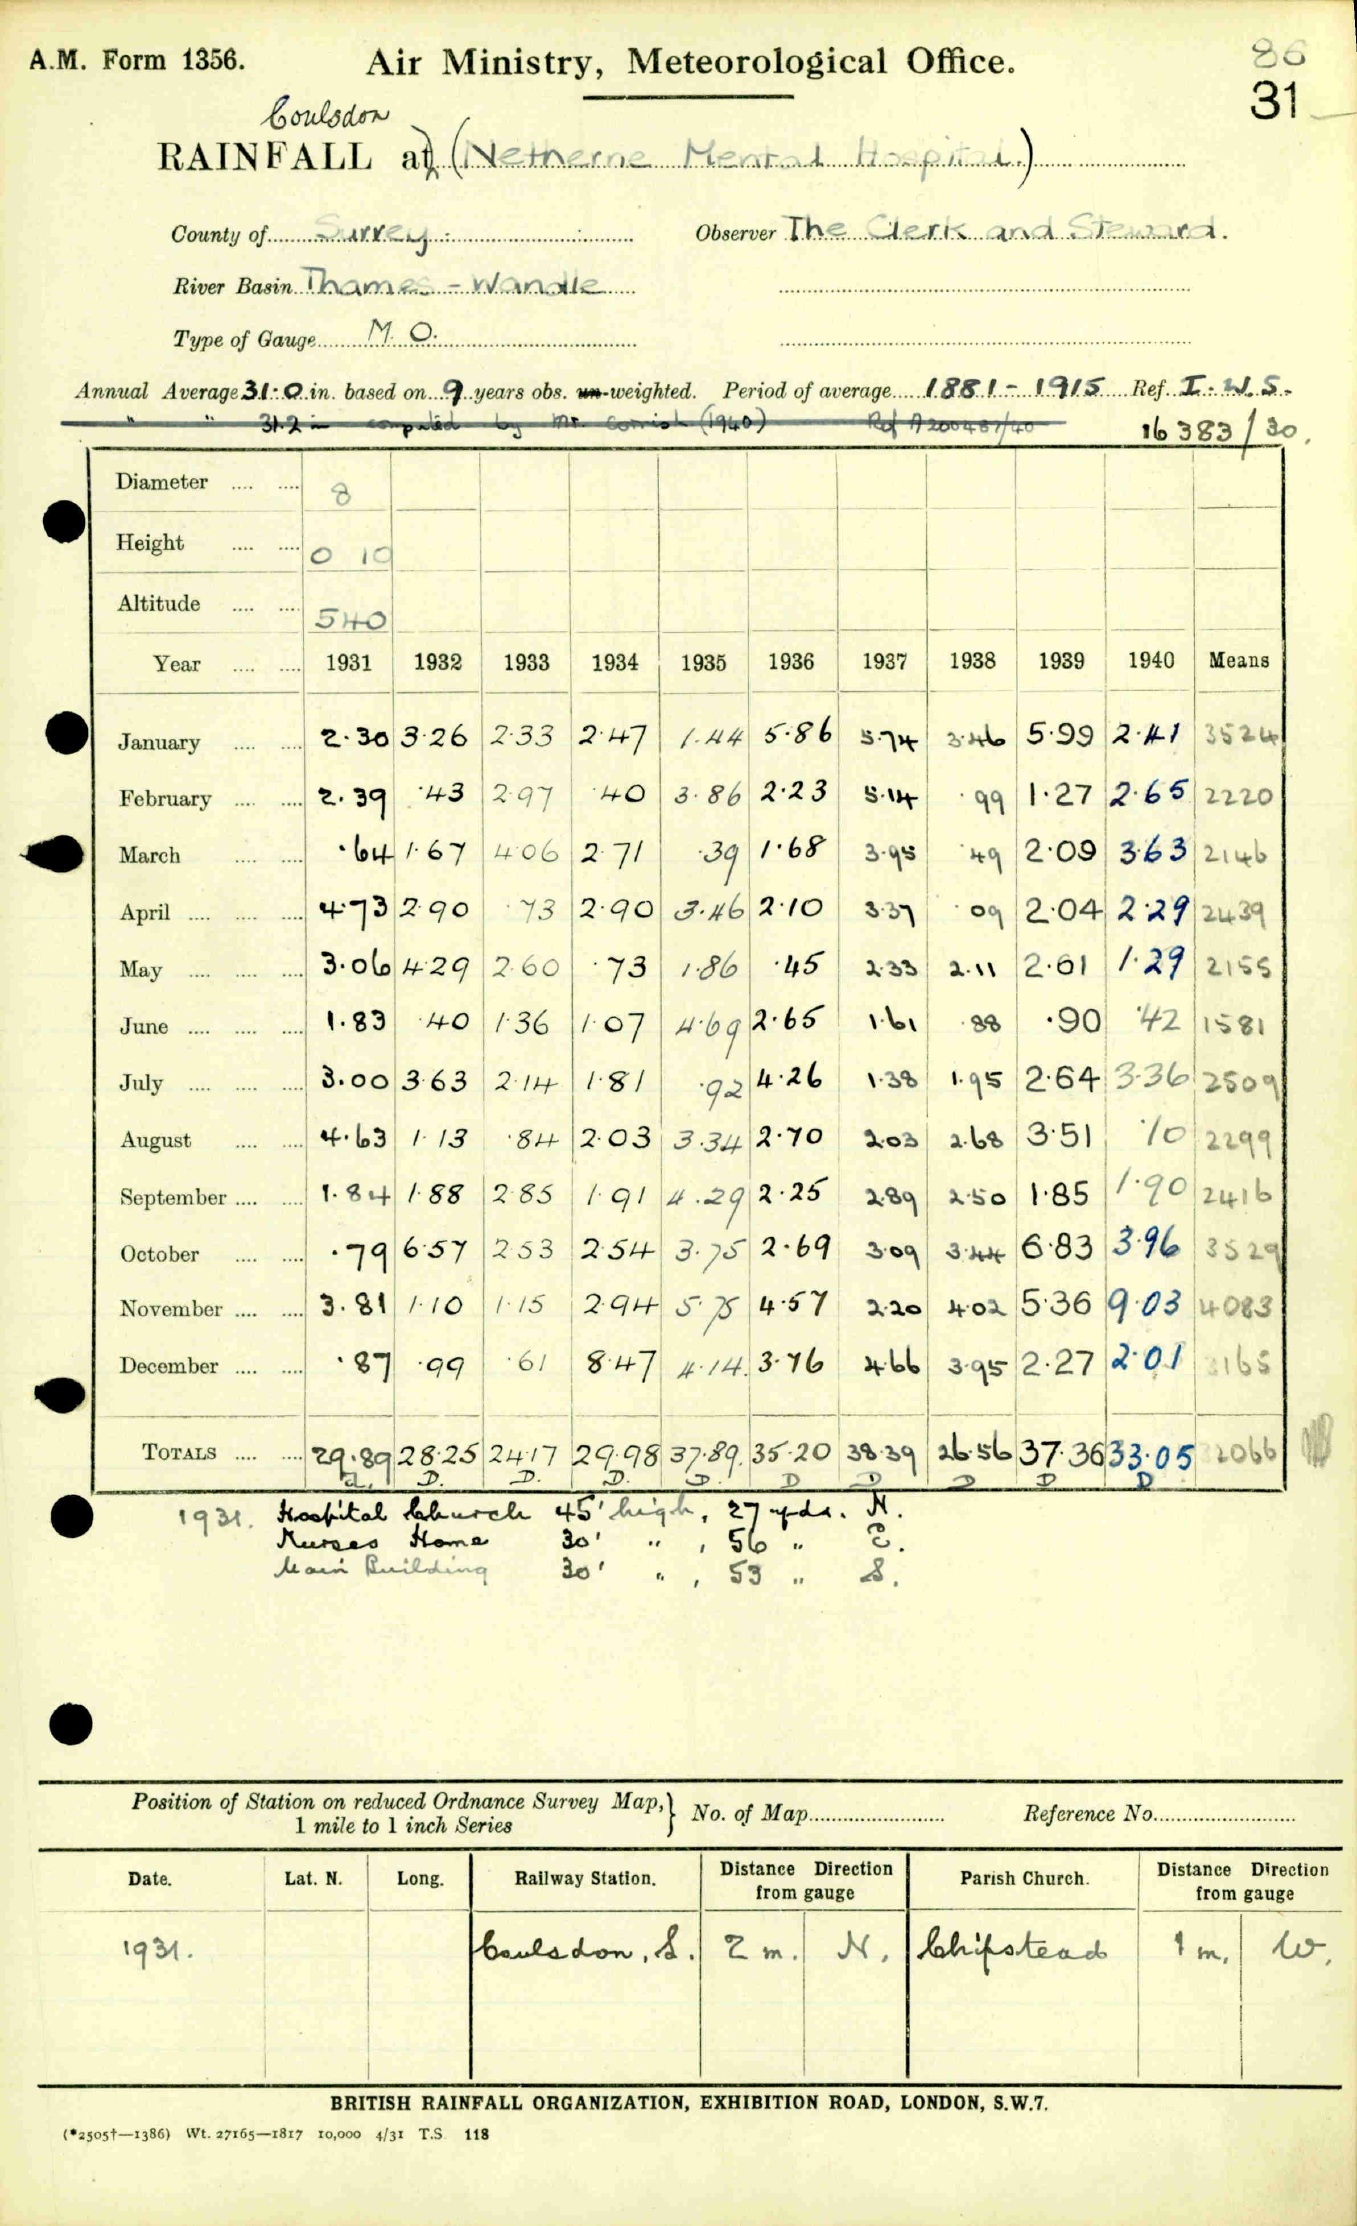 A.M. Form 1356. Air Ministry, Meteorological Office. 86
31
Coulsdon
RAINFALL at (Netherne Mental Hospital.)
County of Surrey. Observer The Clerk and Steward.
River Basin Thames - Wandle
Type of Gauge M.O.
Annual Average 31.0 in. based on 9 years obs. un-weighted. Period of average 1881 - 1915 Ref. I.W.S.
" " 31.2 in computed by Mr. Cornish (1940) Ref A200487/40 16383/30.
Diameter .... .... 8
Height .... .... 0 10
Altitude .... .... 540
Year .... .... 1931 1932 1933 1934 1935 1936 1937 1938 1939 1940 Means
January .... .... 2.30 3.26 2.33 2.47 1.44 5.86 5.74 3.46 5.99 2.41 3524
February .... .... 2.39 .43 2.97 .40 3.86 2.23 5.14 .99 1.27 2.65 2220
March .... .... .64 1.67 4.06 2.71 .39 1.68 3.95 .49 2.09 3.63 2146
April .... .... .... 4.73 2.90 .73 2.90 3.46 2.10 3.37 .09 2.04 2.29 2439
May .... .... .... 3.06 4.29 2.60 .73 1.86 .45 2.33 2.11 2.61 1.29 2155
June .... .... .... 1.83 .40 1.36 1.07 4.69 2.65 1.61 .88 .90 .42 1581
July .... .... .... 3.00 3.63 2.14 1.81 .92 4.26 1.38 1.95 2.64 3.36 2509
August .... .... 4.63 1.13 .84 2.03 3.34 2.70 2.03 2.68 3.51 .10 2299
September .... .... 1.84 1.88 2.85 1.91 4.29 2.25 2.89 2.50 1.85 1.90 2416
October .... .... .79 6.57 2.53 2.54 3.75 2.69 3.09 3.44 6.83 3.96 3529
November .... .... 3.81 1.10 1.15 2.94 5.75 4.57 2.20 4.02 5.36 9.03 4083
December .... .... .87 .99 .61 8.47 4.14 3.76 4.66 3.95 2.27 2.01 3165
TOTALS .... .... 29.89 28.25 24.17 29.98 37.89 35.20 38.39 26.56 37.36 33.05 32066
D. D. D. D. D D D D D
1931. Hospital Church 45' high, 27 yds. N.
Nurses Home 30' " , 56 " E.
Main Building 30' " , 53 " S.
Position of Station on reduced Ordnance Survey Map,
1 mile to 1 inch Series } No. of Map Reference No.
Date. Lat. N. Long. Railway Station. Distance Direction from gauge Parish Church. Distance Direction from gauge
1931. Coulsdon, S. 2 m. N. Chipstead 1 m. W.
BRITISH RAINFALL ORGANIZATION, EXHIBITION ROAD, LONDON, S.W.7.
(*2505†—1386) Wt. 27165—1817 10,000 4/31 T.S. 118